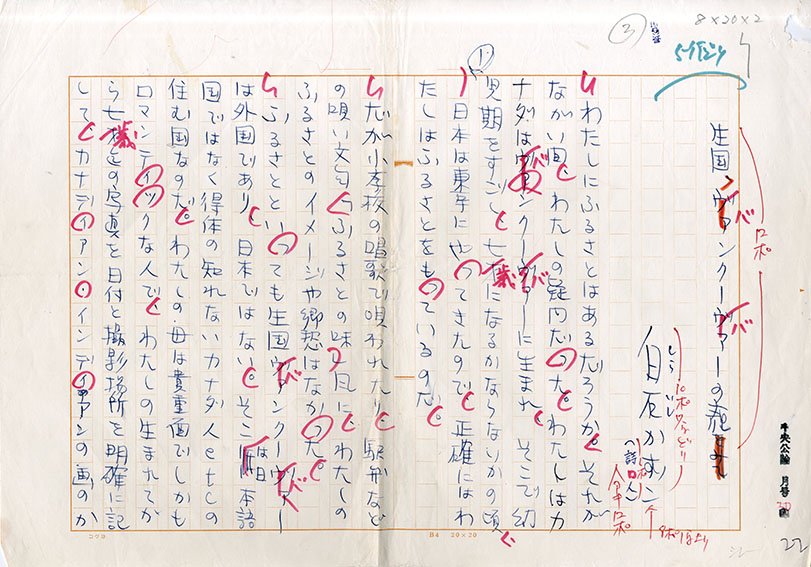 8×20×2
3
5行ドリ
生国ヴァンクーヴァーの
ロポ
しら いし
白石かずこ
(詩人)
1
わたしにふるさとはあるだろうか。それが
ながい間、わたしの疑問だった。わたしはカ
ナダはヴァンクーヴァーに生まれ、そこで幼
児期をすごし、七歳になるかならないかの頃、
日本は東京にやってきたので、正確にはわ
たしはふるさとをもっているのだ。
だが小学校の唱歌で唄われたり、駅弁など
の唄い文句〝ふるさとの味〟風に、わたしの
ふるさとのイメージや郷愁はなかった。
ふるさとといっても生国ヴァンクーヴァー
は外国であり、日本ではない。そこは日本語
国ではなく得体の知れないカナダ人etcの
住む国なのだ。わたしの母は貴重面でしかも
ロマンティックな人で、わたしの生まれてか
ら七歳迄の写真を日付と撮影場所を明確に記
して、カナディアン・インディアンの画のか
中央公論 月号
22
コクヨ
B4 20×20